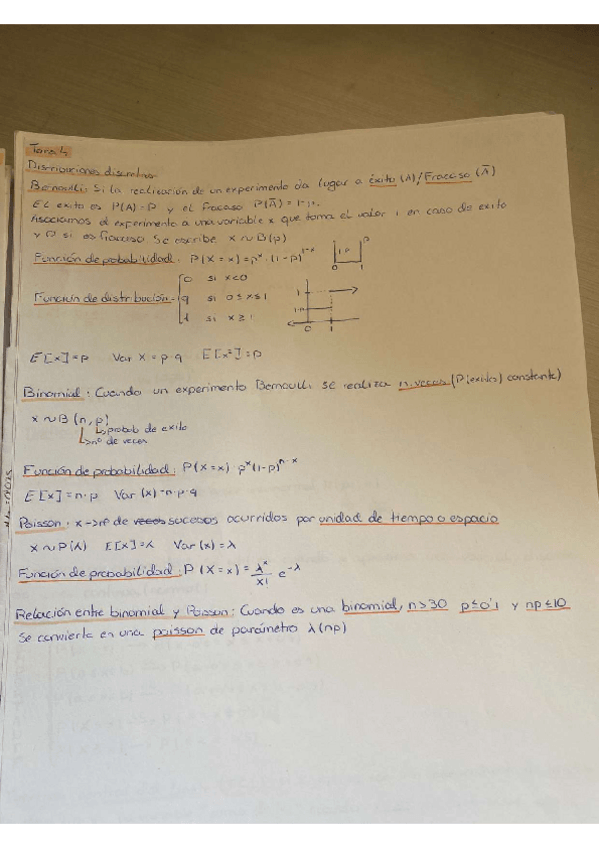 Tema 4
Distribuciones discretas
Bernoulli: Si la realización de un experimento da lugar a éxito (A)/Fracaso (Ā)
El exito es P(A)=P y el fracaso P(Ā)=1-p.
Asociamos el experimento a una variable x que toma el valor 1 en caso de exito
y 0 si es fracaso. Se escribe x~B(p)
Función de probabilidad: P(X=x)=pˣ·(1-p)¹⁻ˣ 1-p p 0 1
0 si x<0
Función de distribución= q si 0≤x≤1
1 si x≥1
1 0 1
E[x]=p Var X=p·q E[x²]=p
Binomial: Cuando un experimento Bernoulli se realiza n veces (P(exito) constante)
x~B(n,p)
probab de exito
nº de veces
Función de probabilidad: P(X=x) pˣ(1-p)ⁿ⁻ˣ
E[x]=n·p Var(x)=n·p·q
Poisson: x->nº de veces sucesos ocurridos por unidad de tiempo o espacio
x~P(λ) E[x]=λ Var(x)=λ
Función de probabilidad: P(X=x)= λˣ/x! e^-λ
Relación entre binomial y Poisson: Cuando es una binomial, n>30 p≤0'1 y np≤10
Se convierte en una poisson de parámetro λ(np)